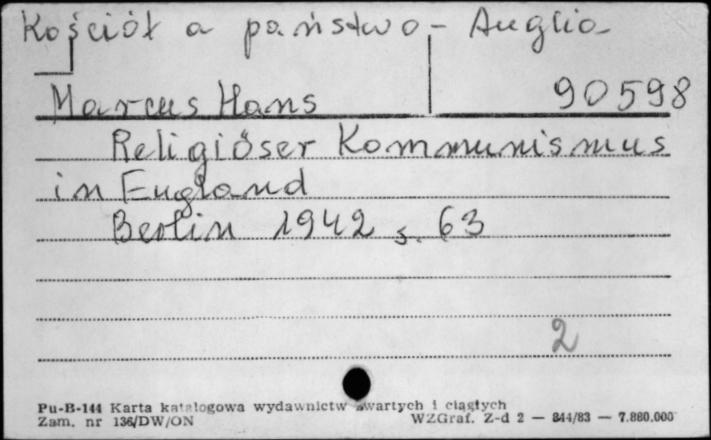 Kościół a państwo - Anglia
Marcus Hans 90598
Religiöser Kommunismus
in England
Berlin 1942 s. 63
2
Pu-B-144 Karta katalogowa wydawnictw zwartych i ciągłych
Zam. nr 136/DW/ON WZGraf. Z-d 2 — 844/83 — 7.880.000